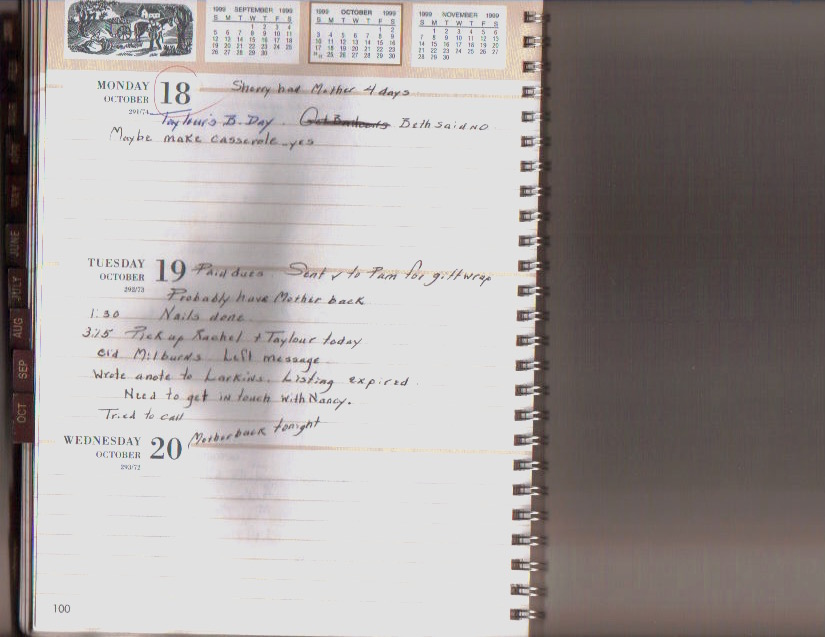 1999 SEPTEMBER 1999
S M T W T F S
1 2 3 4
5 6 7 8 9 10 11
12 13 14 15 16 17 18
19 20 21 22 23 24 25
26 27 28 29 30
1999 OCTOBER 1999
S M T W T F S
1 2
3 4 5 6 7 8 9
10 11 12 13 14 15 16
17 18 19 20 21 22 23
24/31 25 26 27 28 29 30
1999 NOVEMBER 1999
S M T W T F S
1 2 3 4 5 6
7 8 9 10 11 12 13
14 15 16 17 18 19 20
21 22 23 24 25 26 27
28 29 30
MONDAY 18 Sherry had Mother 4 days
OCTOBER
291/74
Taylour's B. Day. Beth said NO
Maybe make casserole yes
TUESDAY 19 Paid dues. Sent ✓ to Pam for giftwrap
OCTOBER
292/73
Probably have Mother back
1:30 Nails done.
3:15 Pick up Rachel + Taylour today
Milburns Left message
Wrote a note to Larkins. Listing expired.
Need to get in touch with Nancy.
Tried to call
WEDNESDAY 20 Mother back tonight
OCTOBER
293/72
100
JUNE
JULY
AUG
SEP
OCT